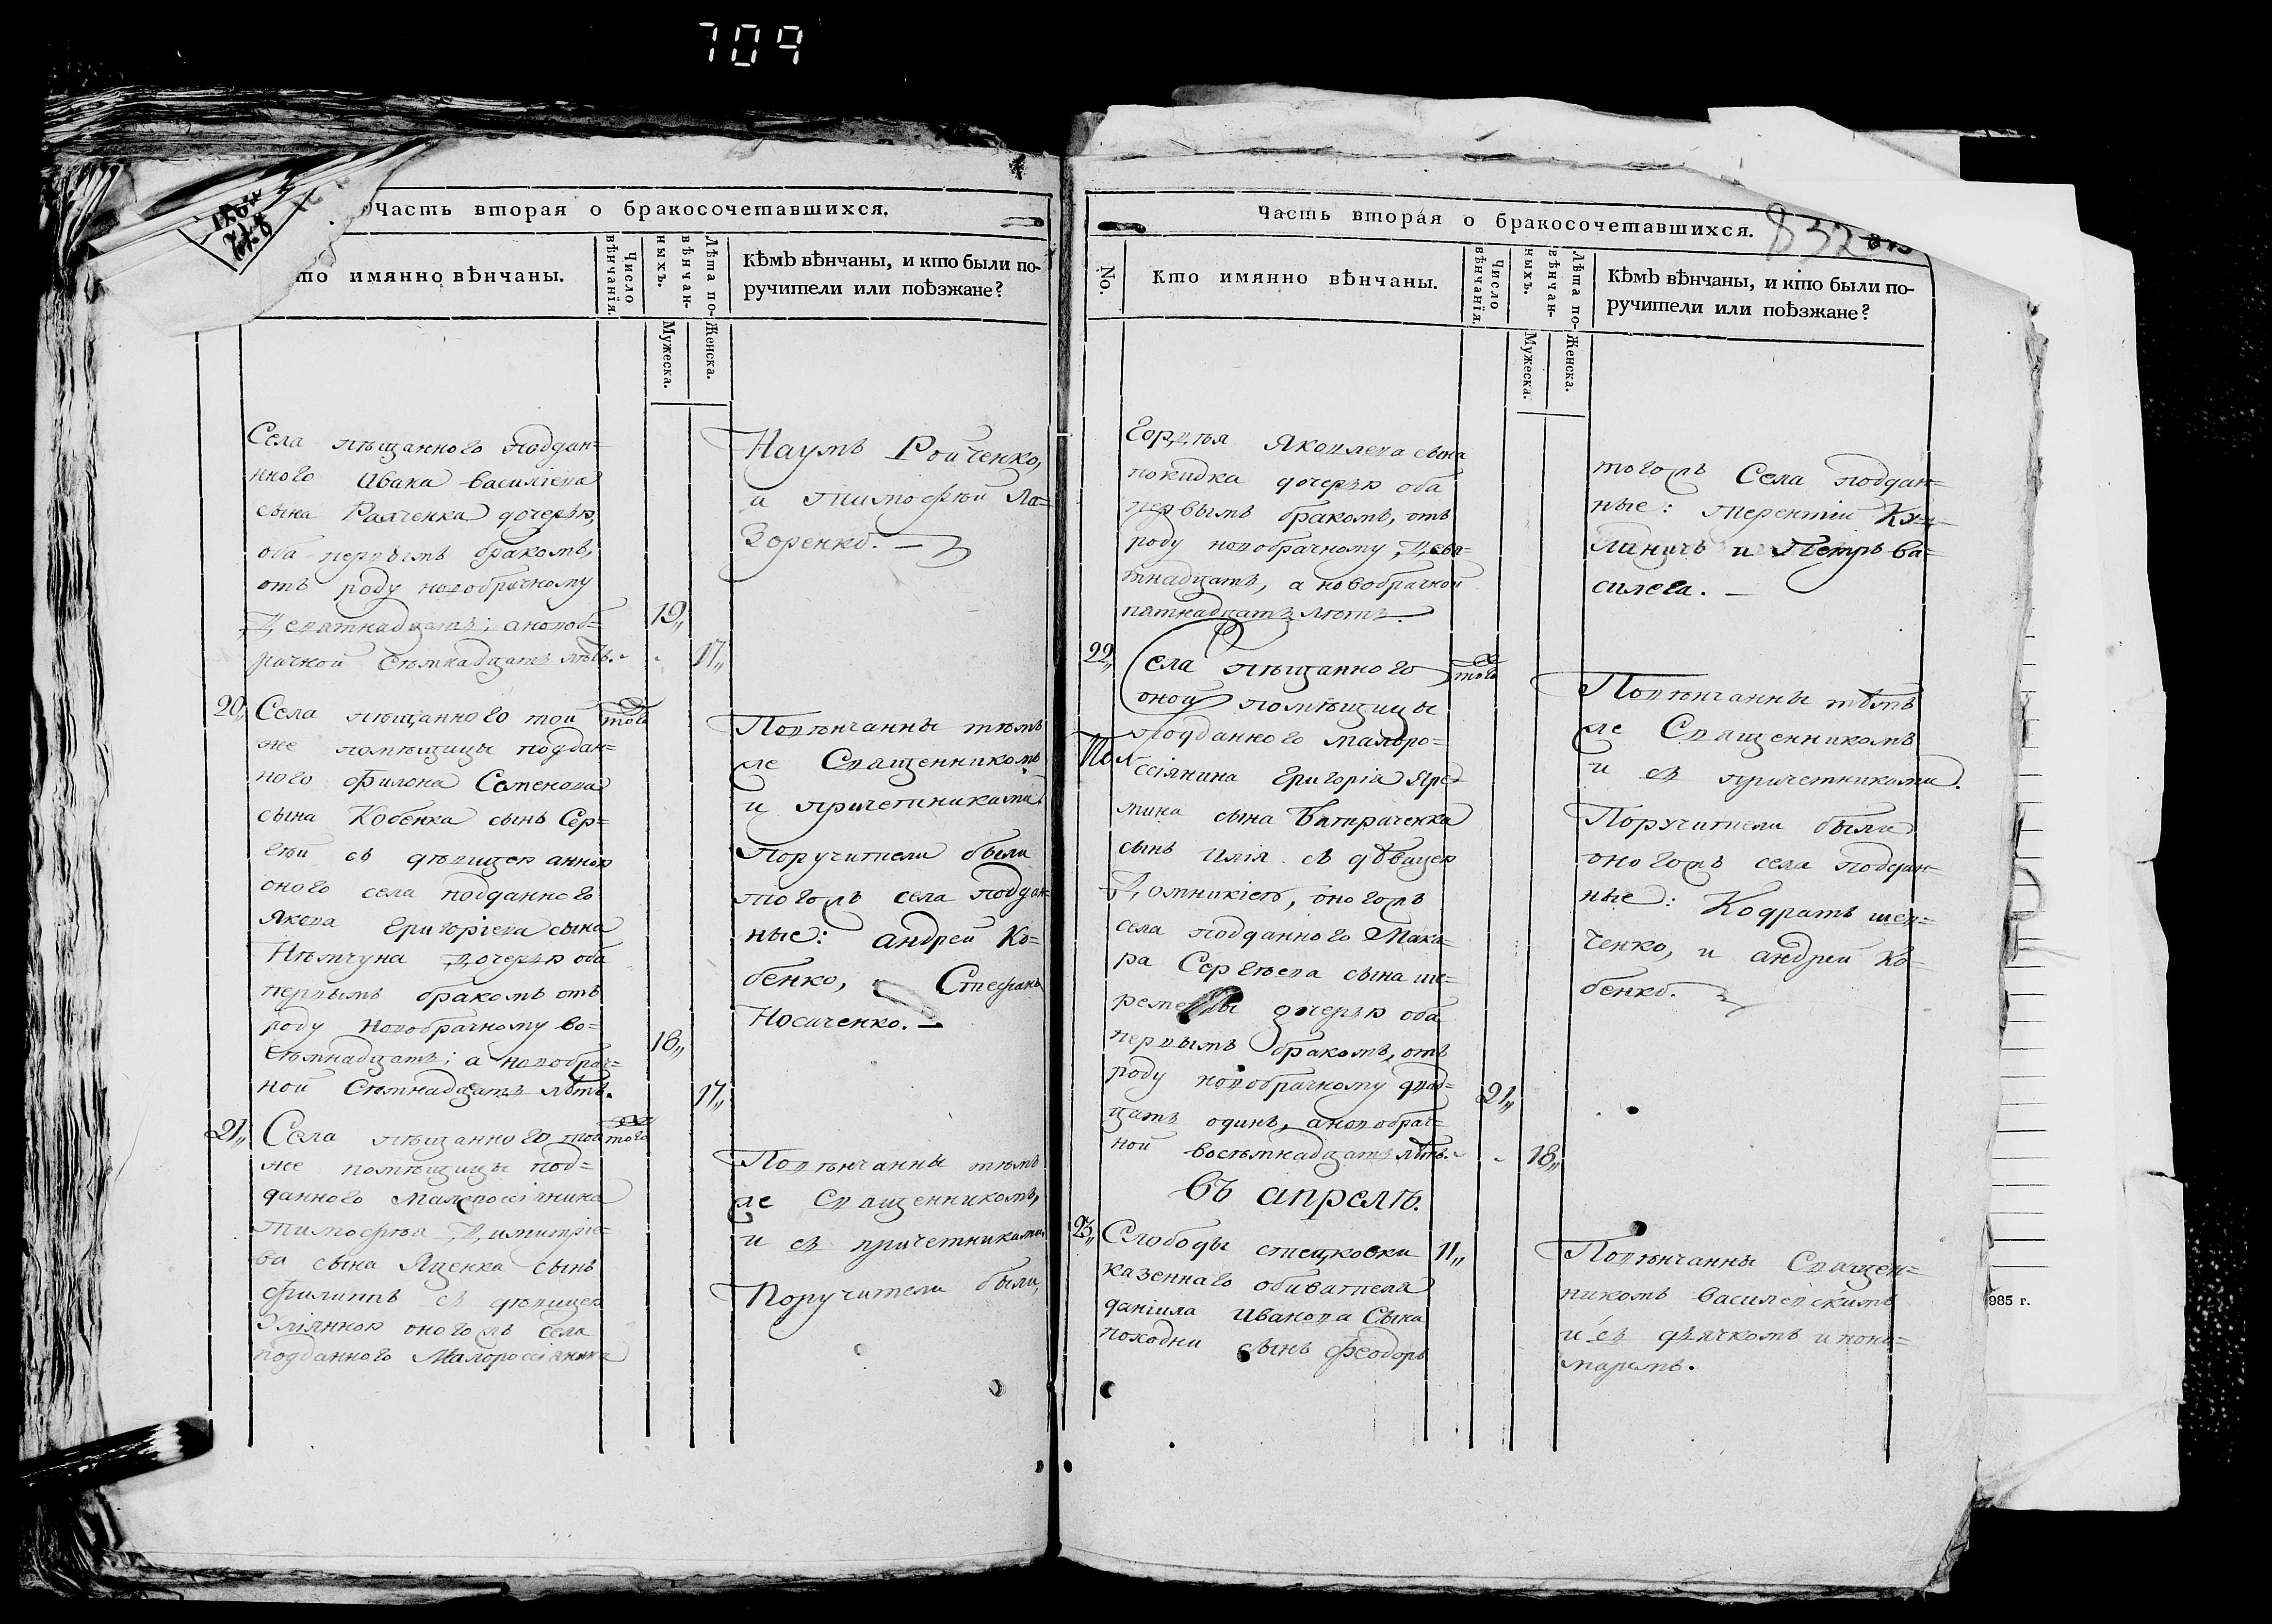 709
Часть вторая о бракосочетавшихся.
то имянно вѣнчаны.
Число вѣнчанія.
Лѣта по-
вѣнчан-
ныхъ.
Мужеска.
Женска.
Кѣмъ вѣнчаны, и кто были по-
ручители или поѣзжане?
Села пѣщанного поддан=
ного Ивана Василіева
сына Раяченка дочерью,
оба первымъ бракомъ,
отъ роду новобрачному
Девятнадцать; а новоб=
рачной Сѣмнадцать лѣтъ.
19„
17„
Наумъ Ройченко,
и Тимофѣй Ла=
зоренко.
20„ Села пѣщанного той
того
же помѣщицы поддан=
ного Филона Семенова
сына Кобенка сынъ Сер=
гѣй съ дѣвицею Анною
оного села подданного
Якова Григоріева сына
Нѣмчуна дочерью оба
первымъ бракомъ отъ
роду новобрачному во=
сѣмнадцать; а новобрач=
ной Сѣмнадцать лѣтъ.
18„
17„
Повѣнчанны тѣмъ
же Священникомъ
и причетниками.
Поручители были
тогожъ села поддан=
ные: Андрей Ко=
бенко, и Стефанъ
Носаченко.
21„ Села пѣщанного той
того
же помѣщицы под=
данного Малоросіянина
Тимофѣя Димитріе=
ва сына Яценка сынъ
Филиппъ съ дѣвицею
Уліянною оногожъ села
подданного Малоросіянина
Повѣнчанны тѣмъ
же Священникомъ,
и съ причетниками
Поручители были,
Часть вторая о бракосочетавшихся.
832
No.
Кто имянно вѣнчаны.
Число вѣнчанія.
Лѣта по-
вѣнчан-
ныхъ.
Мужеска.
Женска.
Кѣмъ вѣнчаны, и кто были по-
ручители или поѣзжане?
Гордѣя Яковлева сына
покидка дочерью оба
первымъ бракомъ, отъ
роду новобрачному Девя=
тнадцать, а новобрачной
пятнадцать лѣтъ
тогожъ Села поддан=
ные: Терентій Ку=
линичъ и Петръ Ва=
силега.
22„ Села пѣщанного
того
оной помѣщицы
подданного малоро=
ссіянина Григоріа Яре=
мина сына Батраченка
сынъ Илія съ дѣвицею
Домникіею, оногожъ
села подданного Мака=
ра Сергѣева сына ше=
реметы дочерью оба
первымъ бракомъ, отъ
роду новобрачному двад=
цать одинъ, а новобрач=
ной восѣмнадцать лѣтъ.
21„
18„
Повѣнчанны тѣмъ
же Священникомъ
и съ причетниками.
Поручители были
оногожъ села поддан=
ные: Кодратъ шев=
ченко, и Андрей Ко=
бенко.
Въ апрелѣ.
23„ Слободы стецковки 11„
казеннаго обивателя
даніила Иванова Сына
походни сынъ Феодоръ
Повѣнчанны Священ=
никомъ Василевскимъ
и съ дячкомъ и поно=
маремъ.
985 г.